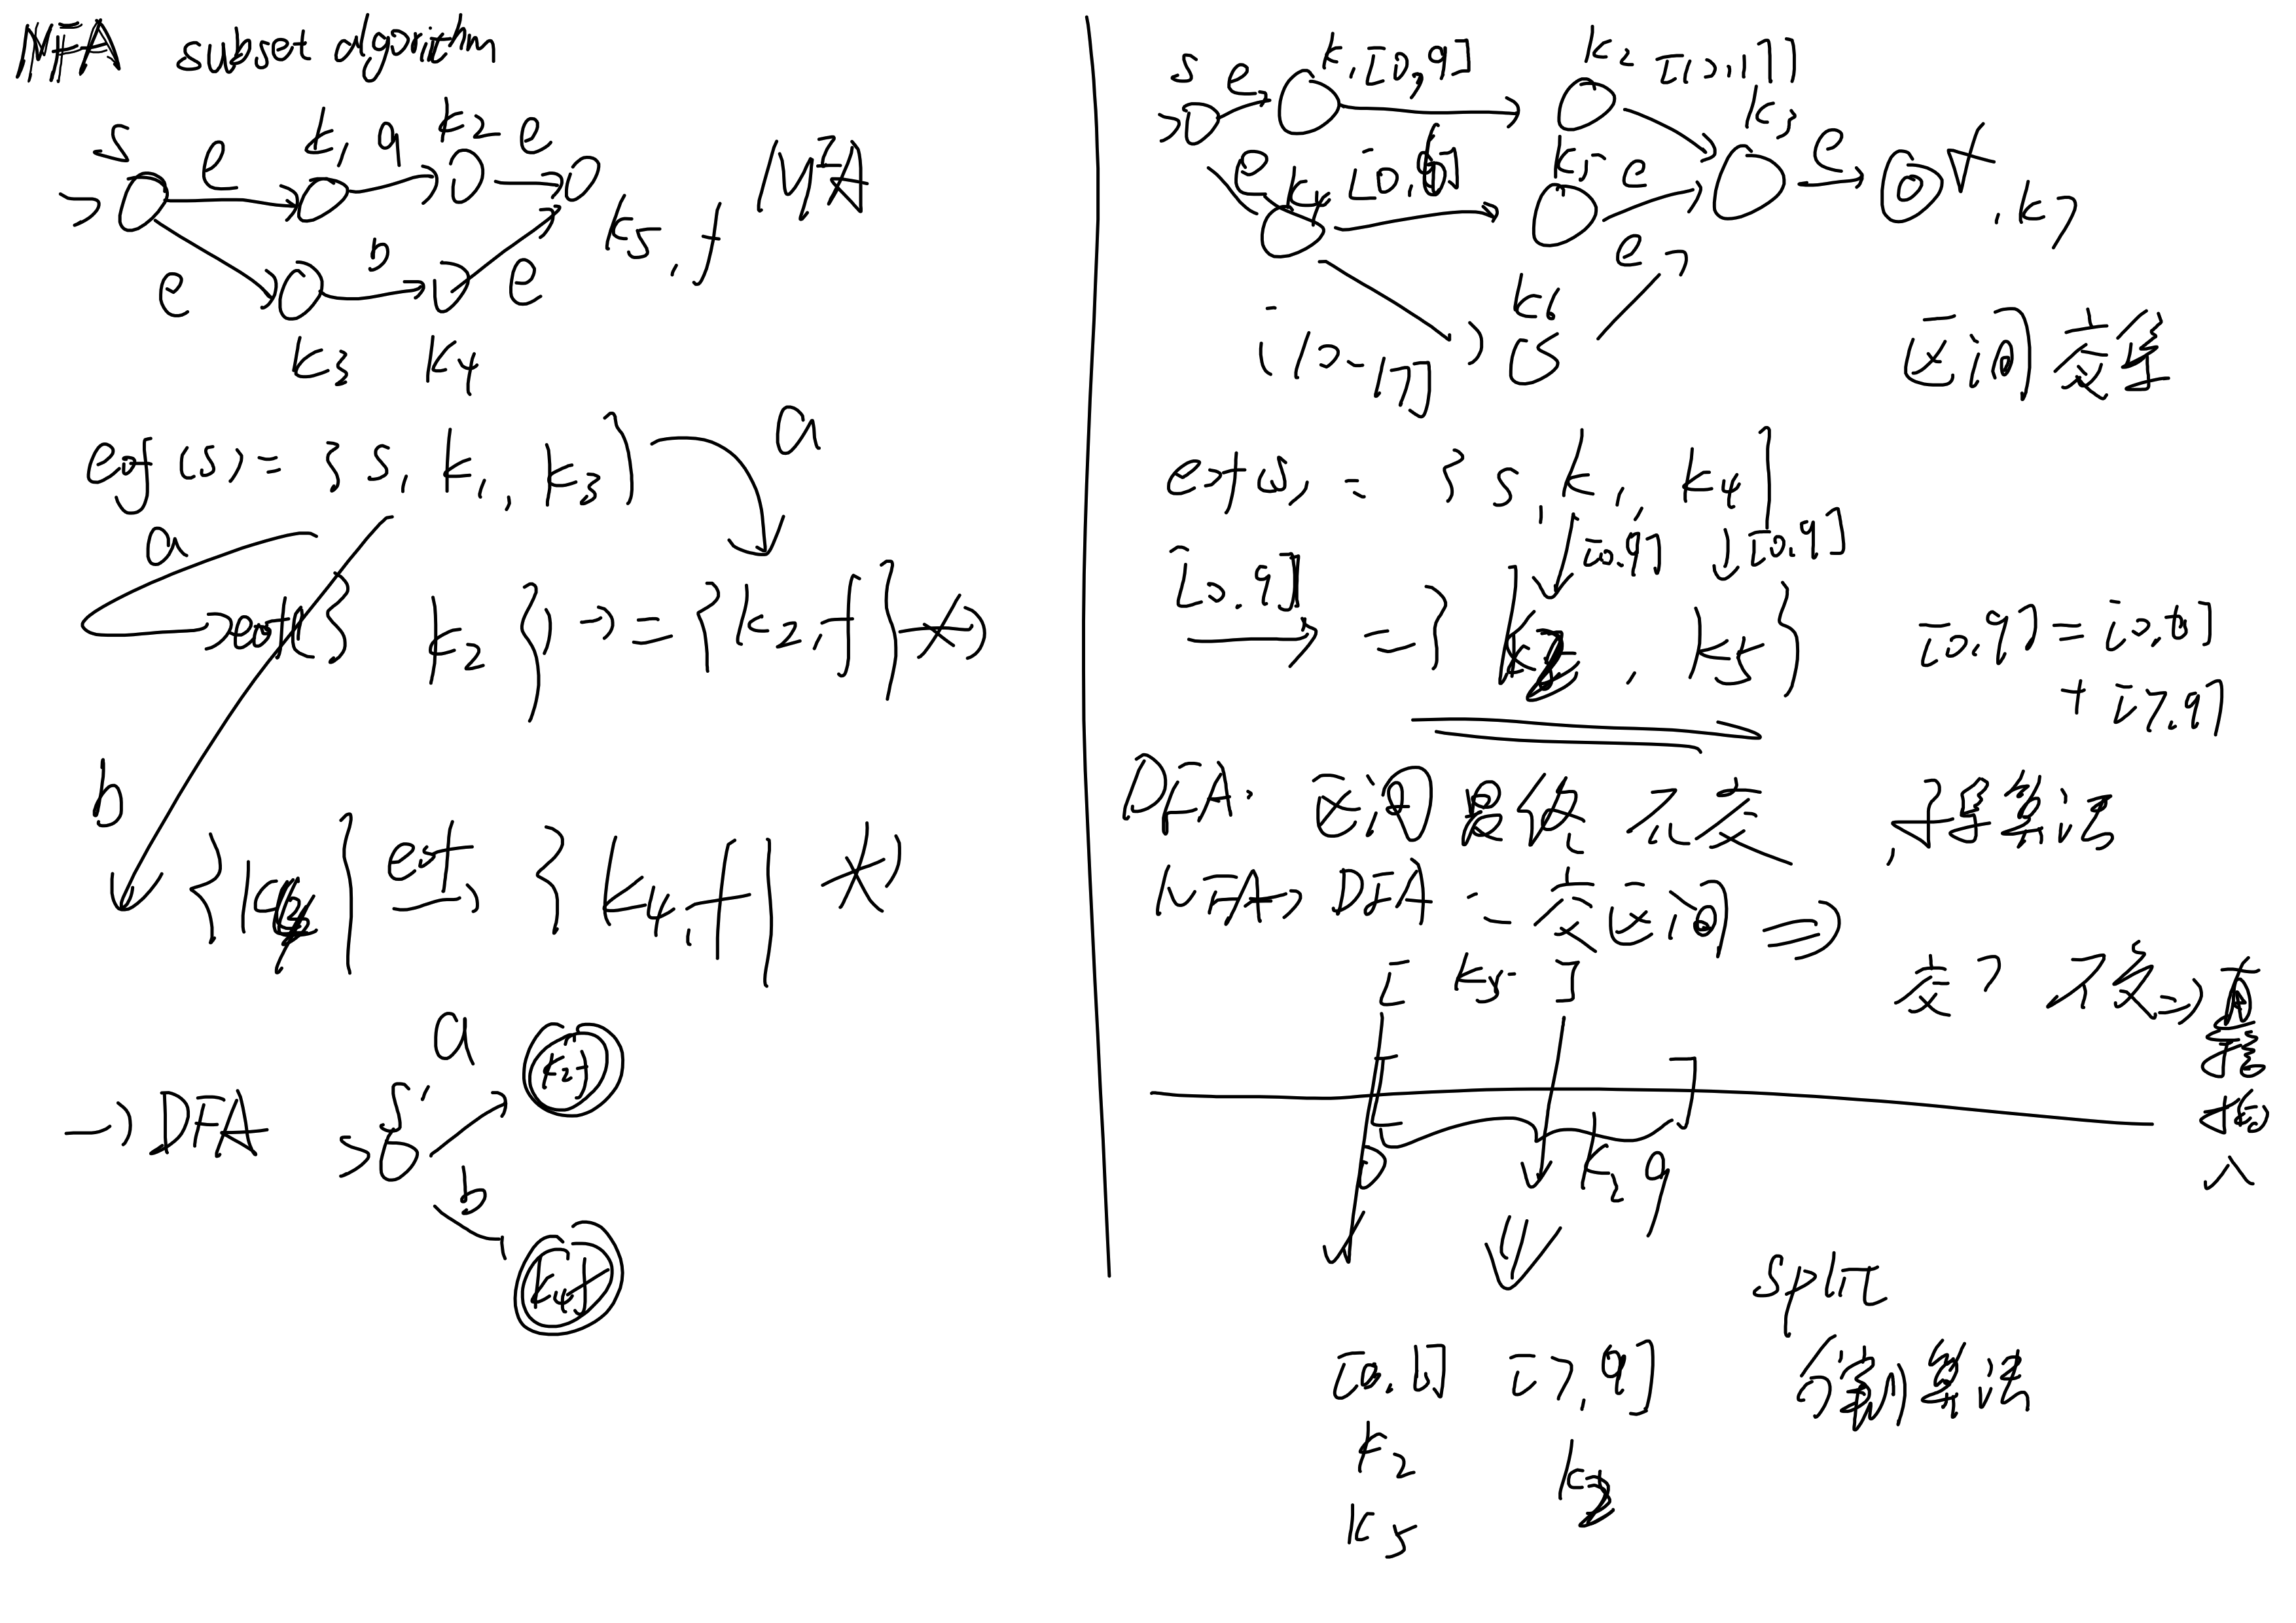 NFA subset algorithm
s e k1 a k2 e
k5, f NFA
e b e
k3 k4
a
eof(s) = { s, k1, k3 }
a
k2 }) => = { k2, f } *
b
{ k4 } { k4, f } *
a
k2f
→ DFA s'
b
k4f
s e k1 [0,9] k2 [10,17]
k3 e
e k4 [0,6] k5 e
, k7
e
[10-17] k6
区间 交集
= { s, k1, k4 }
[0,9] [0,9]
[0,9] = { k2, k5 }
[0,9] = [0,6]
+ [7,9]
DFA: 区间 最终 不交 , 子集算法
NFA → DFA = 交区间 ⇒
[ k5 ] 交? 不交 ⇒ 直接
插入
0 k2 9
split
[0,6] [7,9] 分割算法
k2 k2
k5